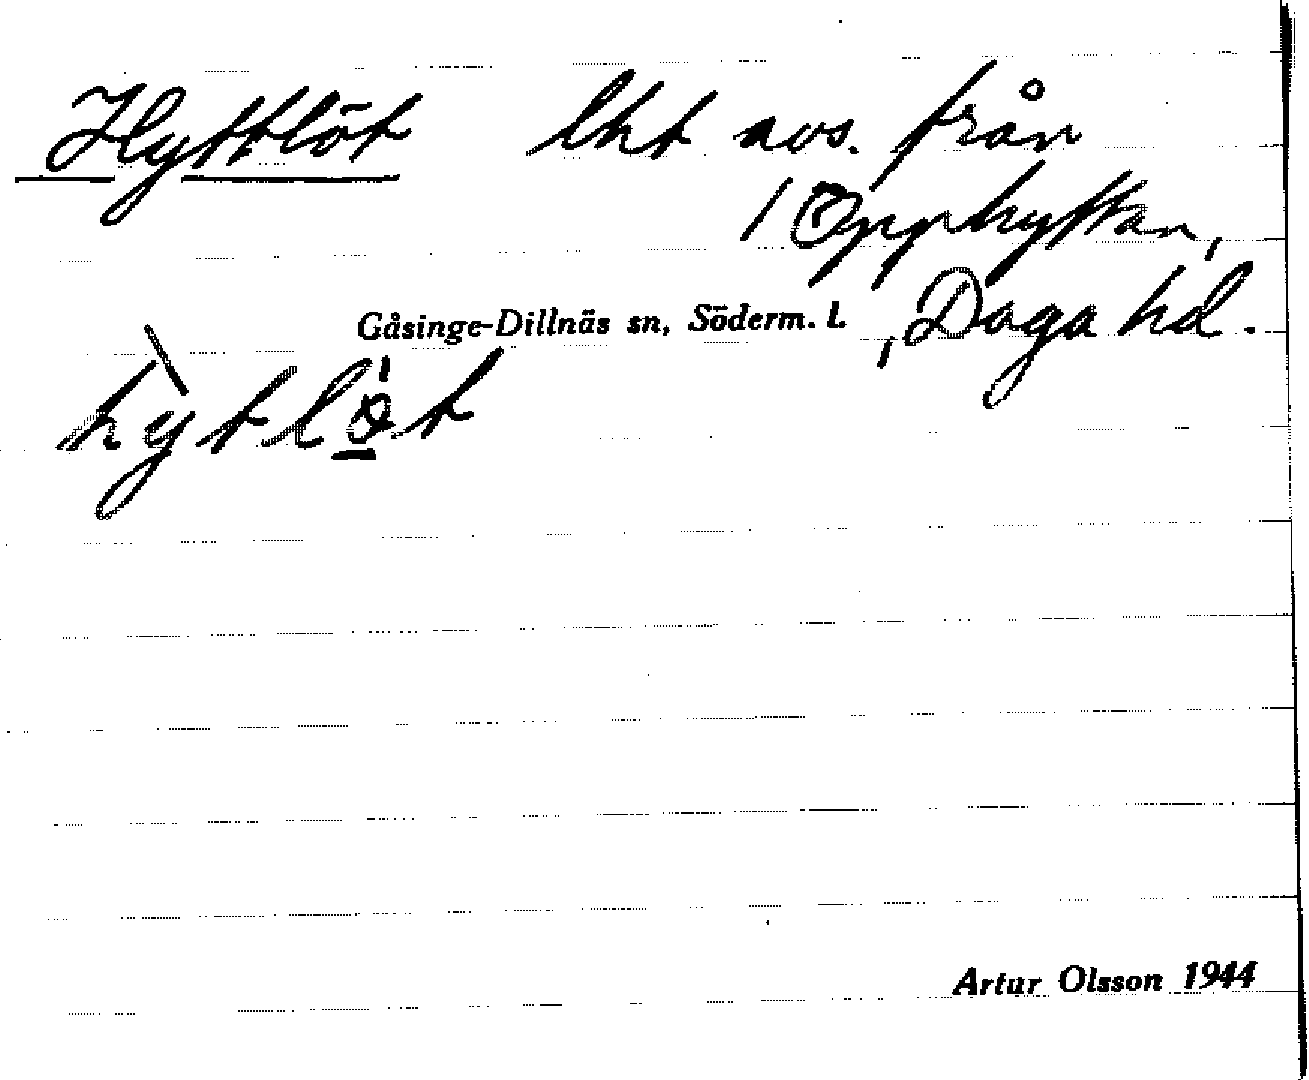 Hyttlöt lht avs. från
/ Opphyttan,
Gåsinge-Dillnäs sn, Söderm. l. , Daga hd.
hỳtlö̱́t
Artur Olsson 1944